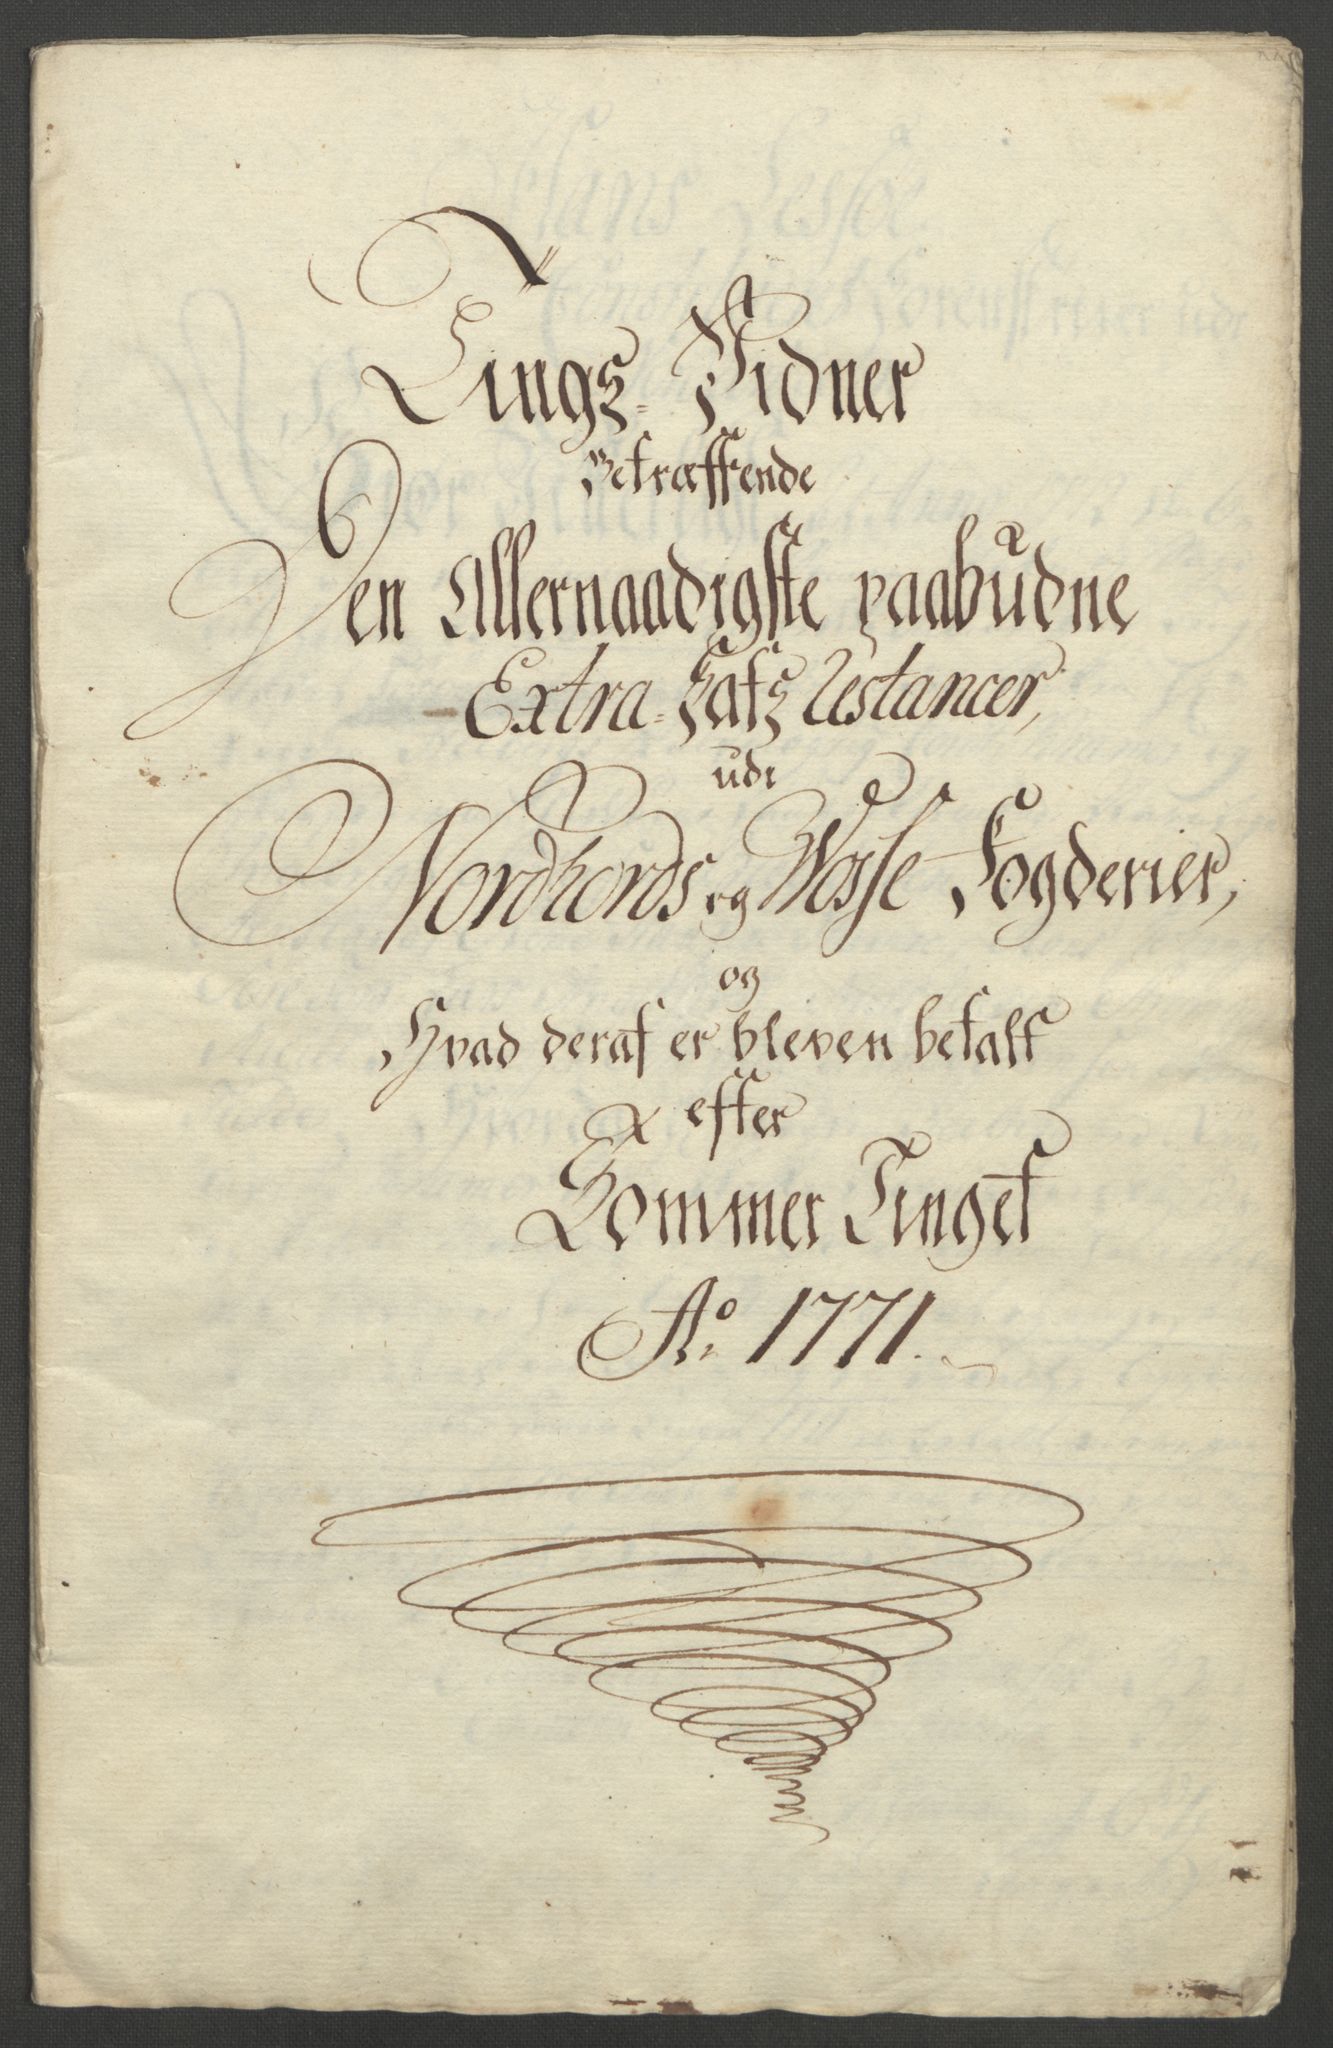 Tings-Vidner
Betræffende
Den Allernaadigste paabudne
Extra-Skatz Restancer,
udi
Nordhords og Wosse Fogderier,
og
Hvad deraf er bleven betalt
efter
Sommer Tinget
Ao. 1771.